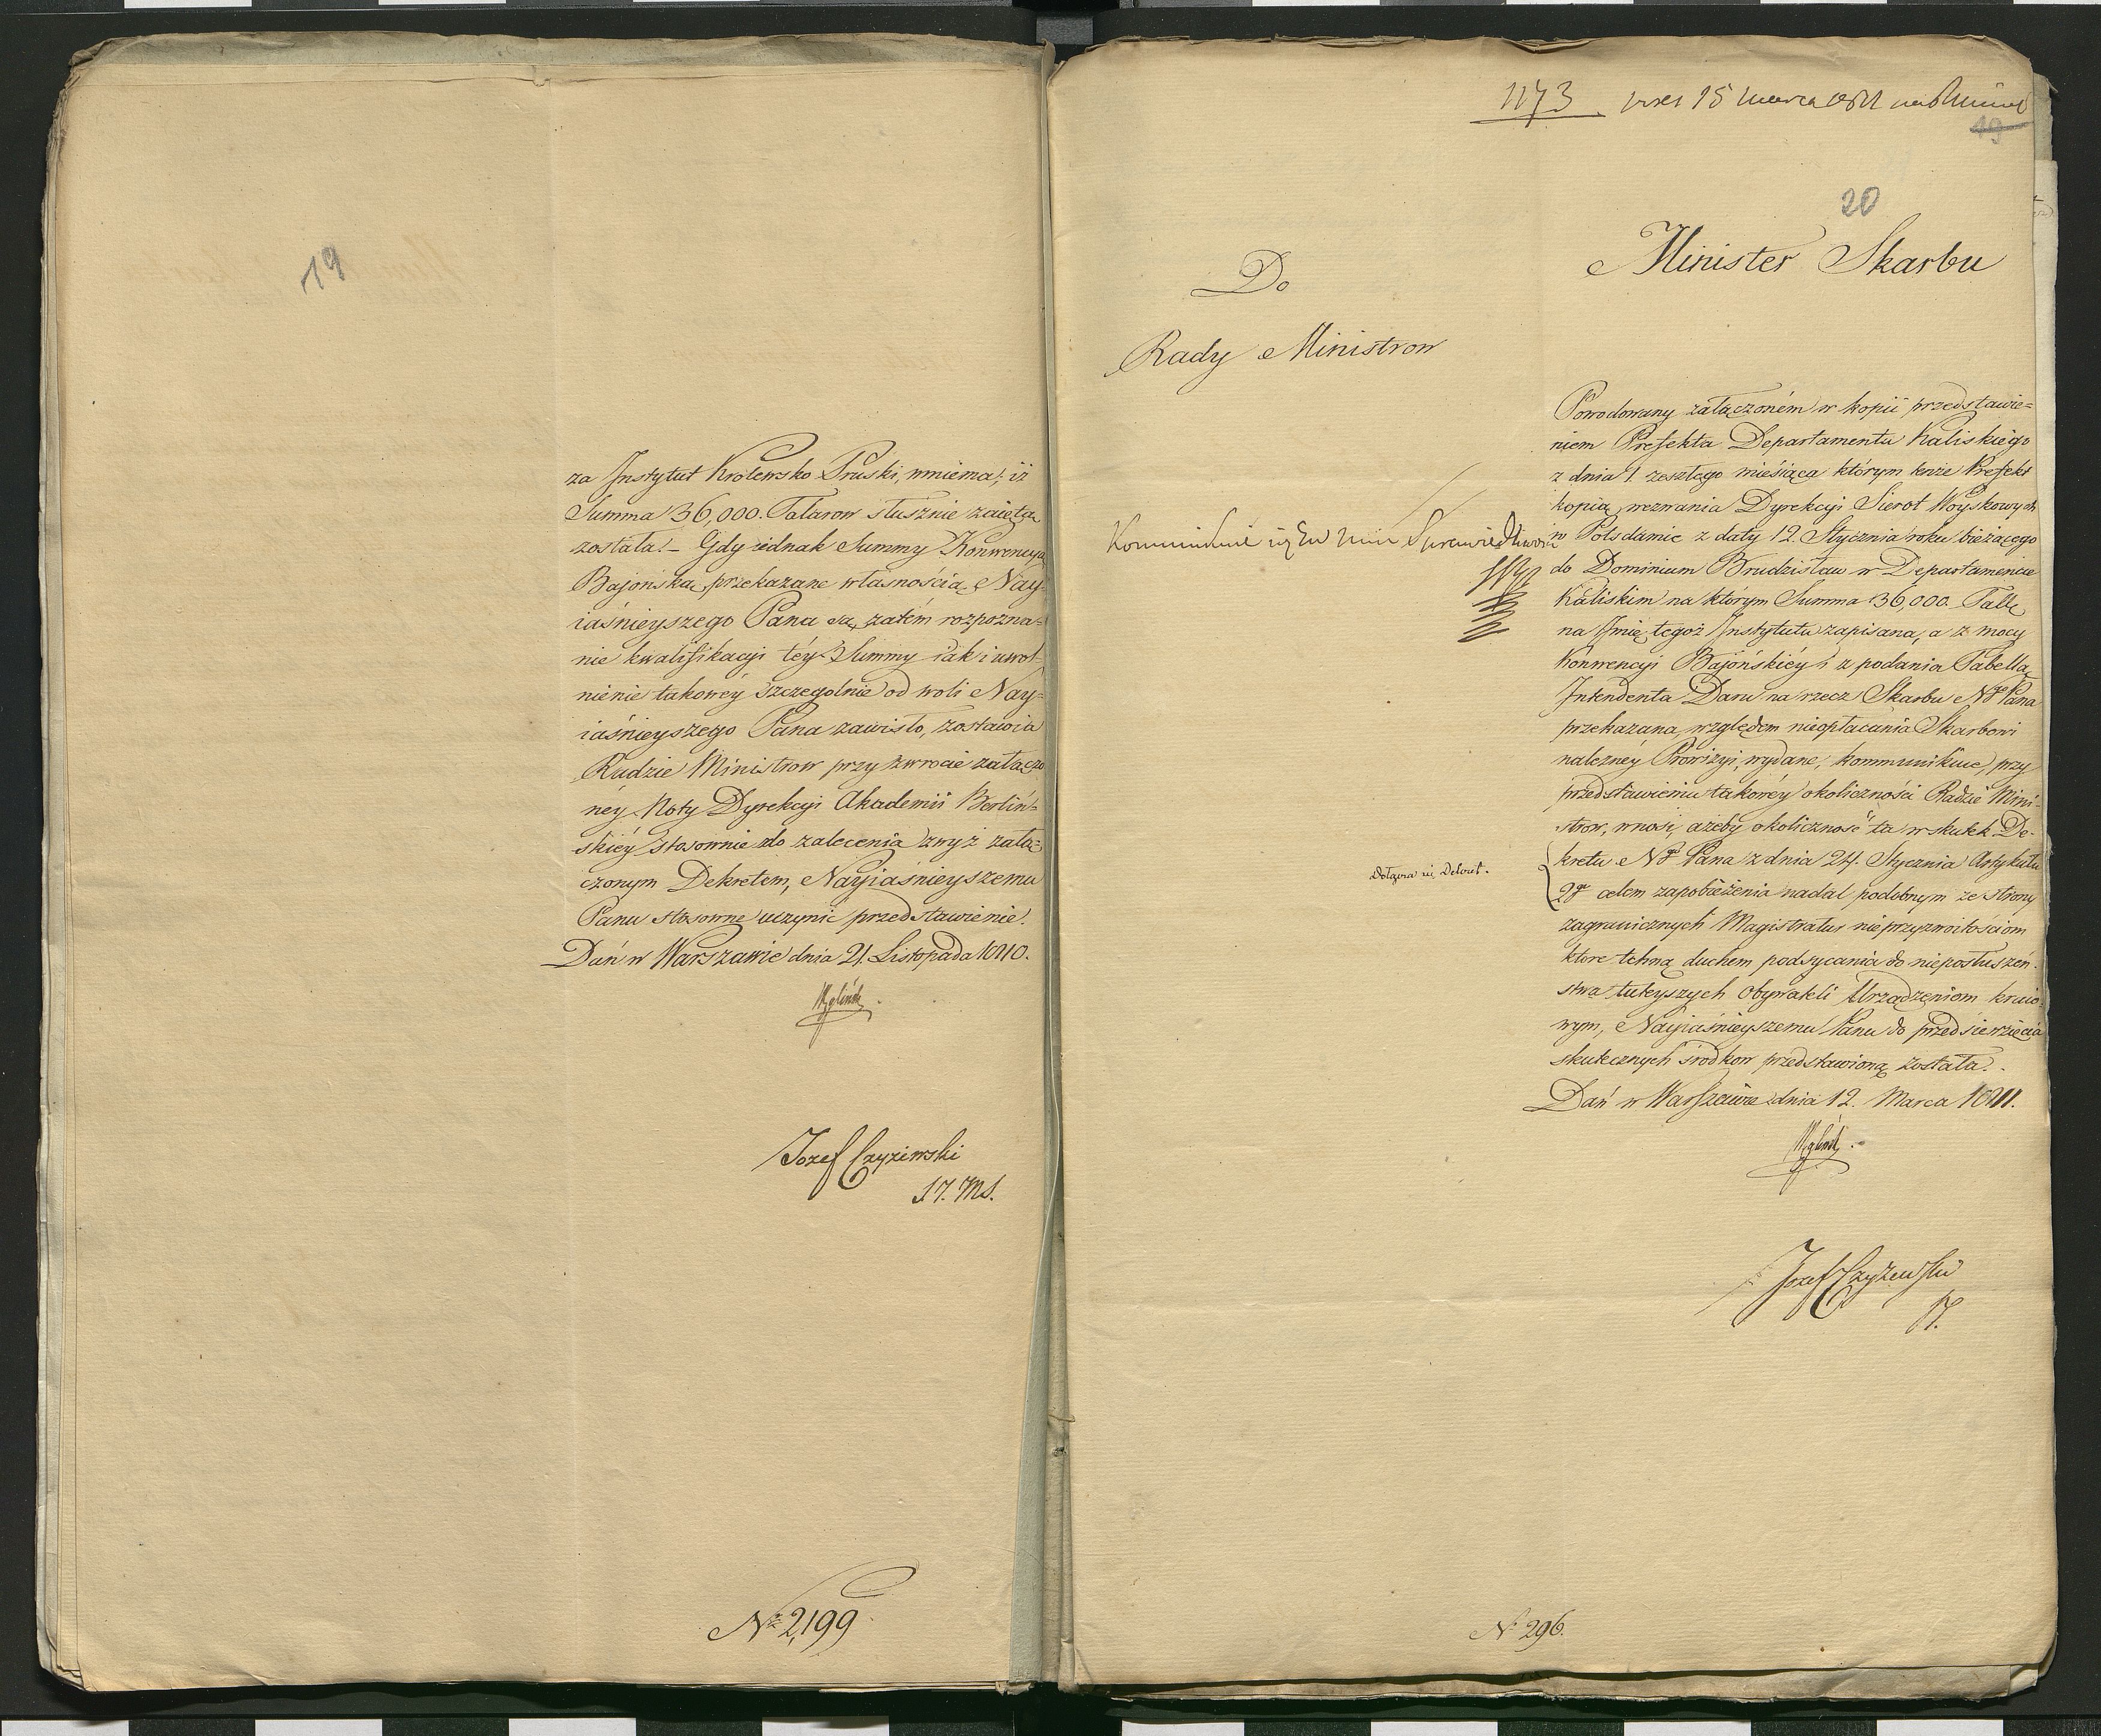 19
za Instytut Krolewsko Pruski, mniema; iż
Summa 36,000. Talarow słusznie zaięta
została. – Gdy iednak Summy Konwencyą
Bajońską przekazane własnością Nay-
iaśnieyszego Pana są, zatém rozpozna-
nie kwalifikacyi téy Summy iak i uwol-
nienie takowéy szczegolnie od woli Nay=
iaśnieyszego Pana zawisło, zostawia
Radzie Ministrow przy zwrocie załączo
néy Noty Dyrekcyi Akademii Berliń-
skiéy stosownie do zalecenia zwyż załą-
czonym Dekretem, Nayiaśnieyszemu
Panu stosowne uczynic przedstawienie.
Dań w Warszawie dnia 21. Listopada 1810.
Węgliński.
Jozef Czyżewski
No 2,199
1173 15 marca 1811
19
20
Minister Skarbu
Do
Rady Ministrow
Powodowany załączoném w kopii przedstawie=
niem Prefekta Departamentu Kaliskiego
z dnia 1. zeszłego miesiąca którym tenże Prefekt
kopią wezwania Dyrekcyi Sierot Woyskowych
w Potsdamie z daty 12. Stycznia roku bieżącego
do Dominium Brudzisław w Departamencie
Kaliskim na ktorym Summa 36,000. Tall.
na Imię tegoż Instytutu zapisana, a z mocy
Konwencyi Bajońskiéy i z podania Tabellą
Intendenta Daru na rzecz Skarbu Ngo Pana
przekazana, względem nieopłacania Skarbowi
należnéy Prowizyi, wydane, kommunikuie, przy
przedstawieniu takowéy okoliczności Radzie Mini-
strow, wnosi, ażeby okoliczność ta w skutek De-
kretu Ngo Pana z dnia 24. Stycznia Artykułu
2go celem zapobieżenia nadal podobnym ze strony
zagranicznych Magistratur nieprzyzwoitościom
ktore tchną duchem podsycania do nieposłuszeń-
stwa tuteyszych Obywateli Urządzeniom kraio-
wym, Nayiaśnieyszemu Panu do przedsięwzięcia
skutecznych środkow przedstawioną została.
Dań w Warszawie dnia 12. Marca 1811.
Kommunikuie się Sprawiedliwości
Dołącza się Dekret.
Węgliński.
Jozef Czyżewski
N. 296.